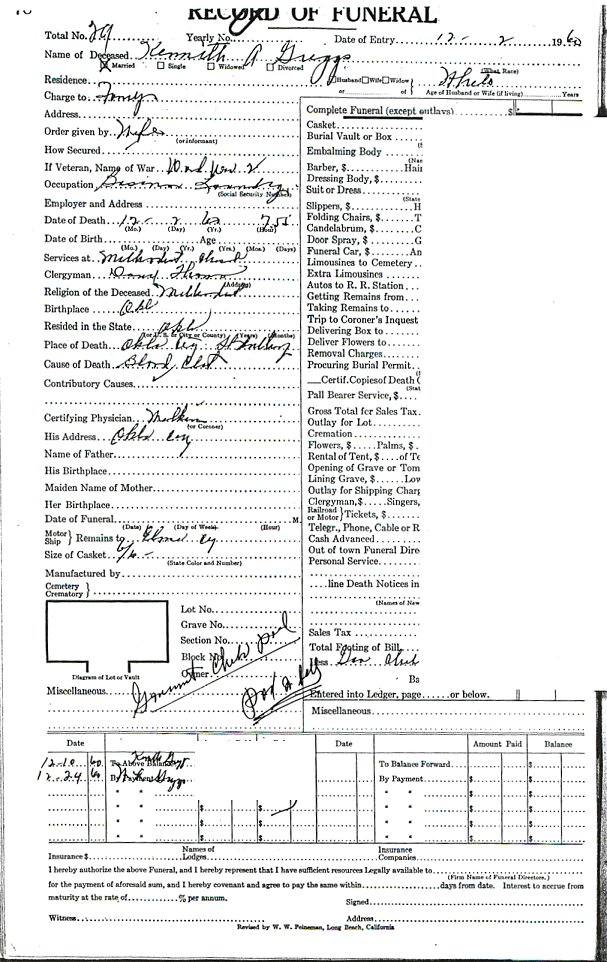 RECORD OF FUNERAL
Total No. 29 Yearly No. Date of Entry 12 - 2 1960
Name of Deceased Kenneth A Griggs
Married Single Widowed Divorced (What Race)
Residence Husband Wife Widow White
or of Age of Husband or Wife (if living) Years
Charge to Family
Address
Order given by Wife
(or informant)
How Secured
If Veteran, Name of War World War 2
Occupation Laundry
(Social Security Number)
Employer and Address
Date of Death 12 - 2 60
(Mo.) (Day) (Yr.) (Hour)
Date of Birth Age
(Mo.) (Day) (Yr.) (Yrs.) (Mos.) (Days)
Services at Methodist Church
Clergyman
(Address)
Religion of the Deceased Methodist
Birthplace Okl
Resided in the State Okl
(or U. S. or City or County) (Years) (Months)
Place of Death Okla Cy St Anthony
Cause of Death Blood Clot
Contributory Causes
Certifying Physician
(or Coroner)
His Address Okla Cy
Name of Father
His Birthplace
Maiden Name of Mother
Her Birthplace
Date of Funeral M.
(Date) (Day of Week) (Hour)
Motor Ship } Remains to Cy
Size of Casket 6/6 -
(State Color and Number)
Manufactured by
Cemetery Crematory }
Lot No.
Grave No.
Section No.
Block No.
Owner
Diagram of Lot or Vault
Miscellaneous Check Paid
Complete Funeral (except outlays) $
Casket
Burial Vault or Box
($
Embalming Body
(Nam
Barber, $ Hair
Dressing Body, $
Suit or Dress
(State
Slippers, $ H
Folding Chairs, $ T
Candelabrum, $ C
Door Spray, $ G
Funeral Car, $ An
Limousines to Cemetery
Extra Limousines
Autos to R. R. Station
Getting Remains from
Taking Remains to
Trip to Coroner's Inquest
Delivering Box to
Deliver Flowers to
Removal Charges
Procuring Burial Permit
Certif. Copies of Death C
(Stat
Pall Bearer Service, $
Gross Total for Sales Tax
Outlay for Lot
Cremation
Flowers, $ Palms, $
Rental of Tent, $ of Te
Opening of Grave or Tom
Lining Grave, $ Lov
Outlay for Shipping Charg
Clergyman, $ Singers,
Railroad or Motor } Tickets, $
Telegr., Phone, Cable or R
Cash Advanced
Out of town Funeral Dire
Personal Service
line Death Notices in
(Names of New
Sales Tax
Total Footing of Bill
Less
Ba
Entered into Ledger, page or below.
Miscellaneous
Date Date Amount Paid Balance
12-10 60 To Above Balance To Balance Forward $
12-24 60 By Payment By Payment $ $
" " " " $ $
" " $ $ " " $ $
" " $ $ " " $ $
Insurance $ Names of Lodges Insurance Companies
I hereby authorize the above Funeral, and I hereby represent that I have sufficient resources Legally available to
(Firm Name of Funeral Directors.)
for the payment of aforesaid sum, and I hereby covenant and agree to pay the same within days from date. Interest to accrue from
maturity at the rate of % per annum. Signed
Witness Address
Revised by W. W. Feineman, Long Beach, California